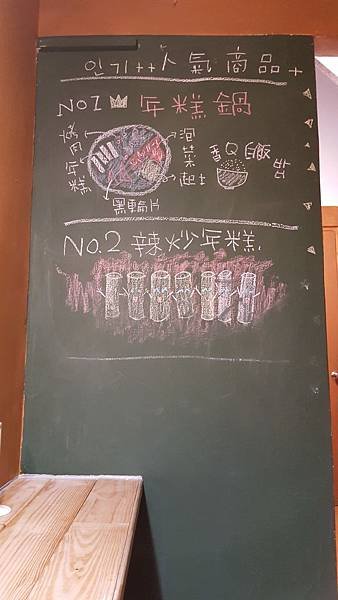 인기++人氣商品+
NO1 年糕鍋
烤肉年糕
泡菜
起士
黑輪片
香Q白飯
밥
NO.2 辣炒年糕